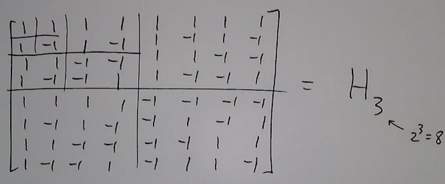 1 1 1 1 1 1 1 1
1 -1 1 -1 1 -1 1 -1
1 1 -1 -1 1 1 -1 -1
1 -1 -1 1 1 -1 -1 1
= H₃
1 1 1 1 -1 -1 -1 -1
1 -1 1 -1 -1 1 -1 1
1 1 -1 -1 -1 -1 1 1
1 -1 -1 1 -1 1 1 -1
2³=8